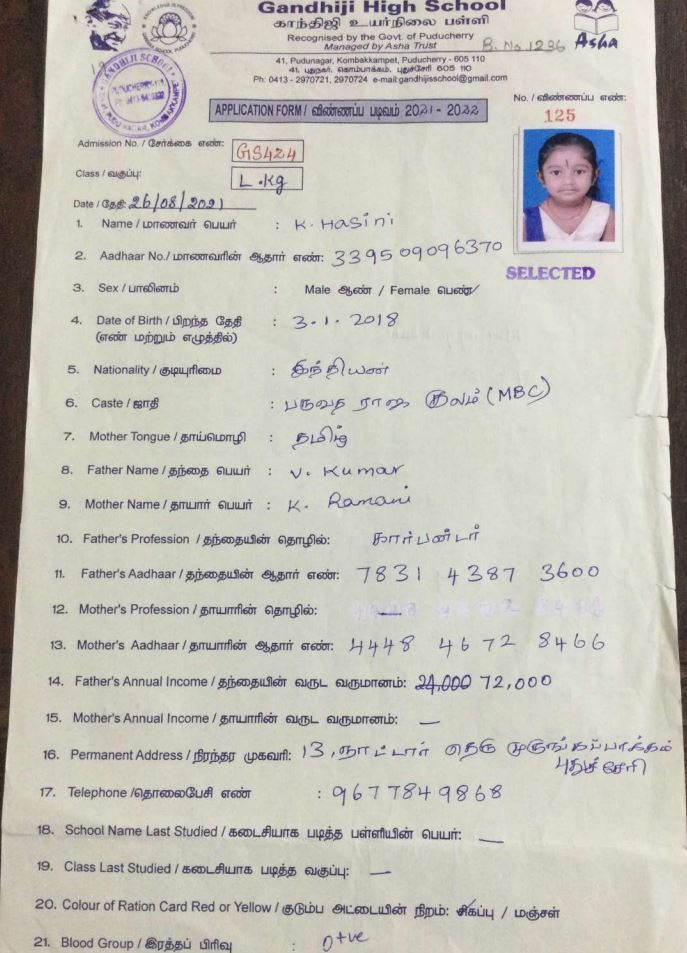 Gandhiji High School
காந்திஜி உயர்நிலை பள்ளி
Recognised by the Govt. of Puducherry
Managed by Asha Trust
R. No 1236
Asha
41, Pudunagar, Kombakkampet, Puducherry - 605 110
41, புதுநகர், கொம்பாக்கம், புதுச்சேரி 605 110
Ph: 0413 - 2970721, 2970724 e-mail:gandhijisschool@gmail.com
GANDHIJI SCHOOL
APPLICATION FORM / விண்ணப்ப படிவம் 2021 - 2022
No. / விண்ணப்ப எண்:
125
Admission No. / சேர்க்கை எண்: GS424
Class / வகுப்பு: L.kg
Date / தேதி: 26/08/2021
1. Name / மாணவர் பெயர் : K. Hasini
2. Aadhaar No./ மாணவரின் ஆதார் எண்: 339509096370
SELECTED
3. Sex / பாலினம் : Male ஆண் / Female பெண்
4. Date of Birth / பிறந்த தேதி : 3.1.2018
(எண் மற்றும் எழுத்தில்)
5. Nationality / குடியுரிமை : இந்தியன்
6. Caste / ஜாதி : பருவத ராஜ குலம் (MBC)
7. Mother Tongue / தாய்மொழி : தமிழ்
8. Father Name / தந்தை பெயர் : V. Kumar
9. Mother Name / தாயார் பெயர் : K. Ramani
10. Father's Profession / தந்தையின் தொழில்: கார்பண்டர்
11. Father's Aadhaar / தந்தையின் ஆதார் எண்: 7831 4387 3600
12. Mother's Profession / தாயாரின் தொழில்: —
13. Mother's Aadhaar / தாயாரின் ஆதார் எண்: 4448 4672 8466
14. Father's Annual Income / தந்தையின் வருட வருமானம்: 24,000 72,000
15. Mother's Annual Income / தாயாரின் வருட வருமானம்: —
16. Permanent Address / நிரந்தர முகவரி: 13, நாட்டார் தெரு முருங்கப்பாக்கம்
புதுச்சேரி
17. Telephone /தொலைபேசி எண் : 9677849868
18. School Name Last Studied / கடைசியாக படித்த பள்ளியின் பெயர்: —
19. Class Last Studied / கடைசியாக படித்த வகுப்பு: —
20. Colour of Ration Card Red or Yellow / குடும்ப அட்டையின் நிறம்: சிகப்பு / மஞ்சள்
21. Blood Group / இரத்தப் பிரிவு : O+ve